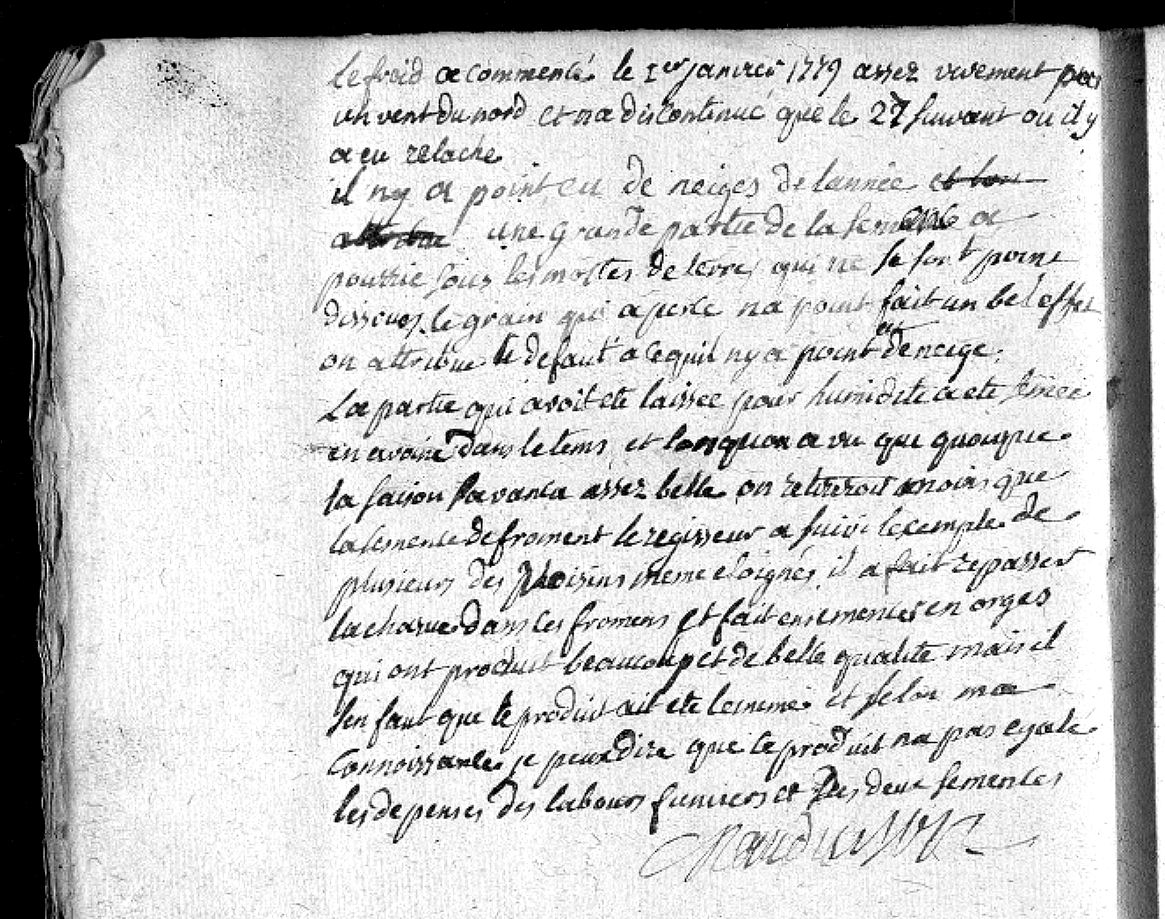 le froid a commencé le 1er janvier 1779 assez vivement par
un vent du nord et na discontinué que le 27 suivant ou il y
a eu relache
il ny a point eu de neiges de lannée et lon
attribue une grande partie de la semence a
pourrie sous les mottes de terre qui ne se sont point
dissoues. le grain qui a percé na point fait un bel effet
on attribue le defaut a cequil ny a point eu de neige.
La partie qui avoit eté laissée pour humidité a eté
en avoine dans le tems et lorsquon a vu que quoique
la saison savanca assez belle on retireroit moins que
la semence de froment le regisseur a suivi lexemple de
plusieurs des voisins meme eloignés il a fait repasser
la charue dans les fromens et fait ensemencer en orges
qui ont produit beaucoup et de belle qualité mais il
sen faut que le produit ait eté le meme et selon ma
connoissance je peux dire que le produit na pas egalé
les depenses des labours fumiers et des deux semences